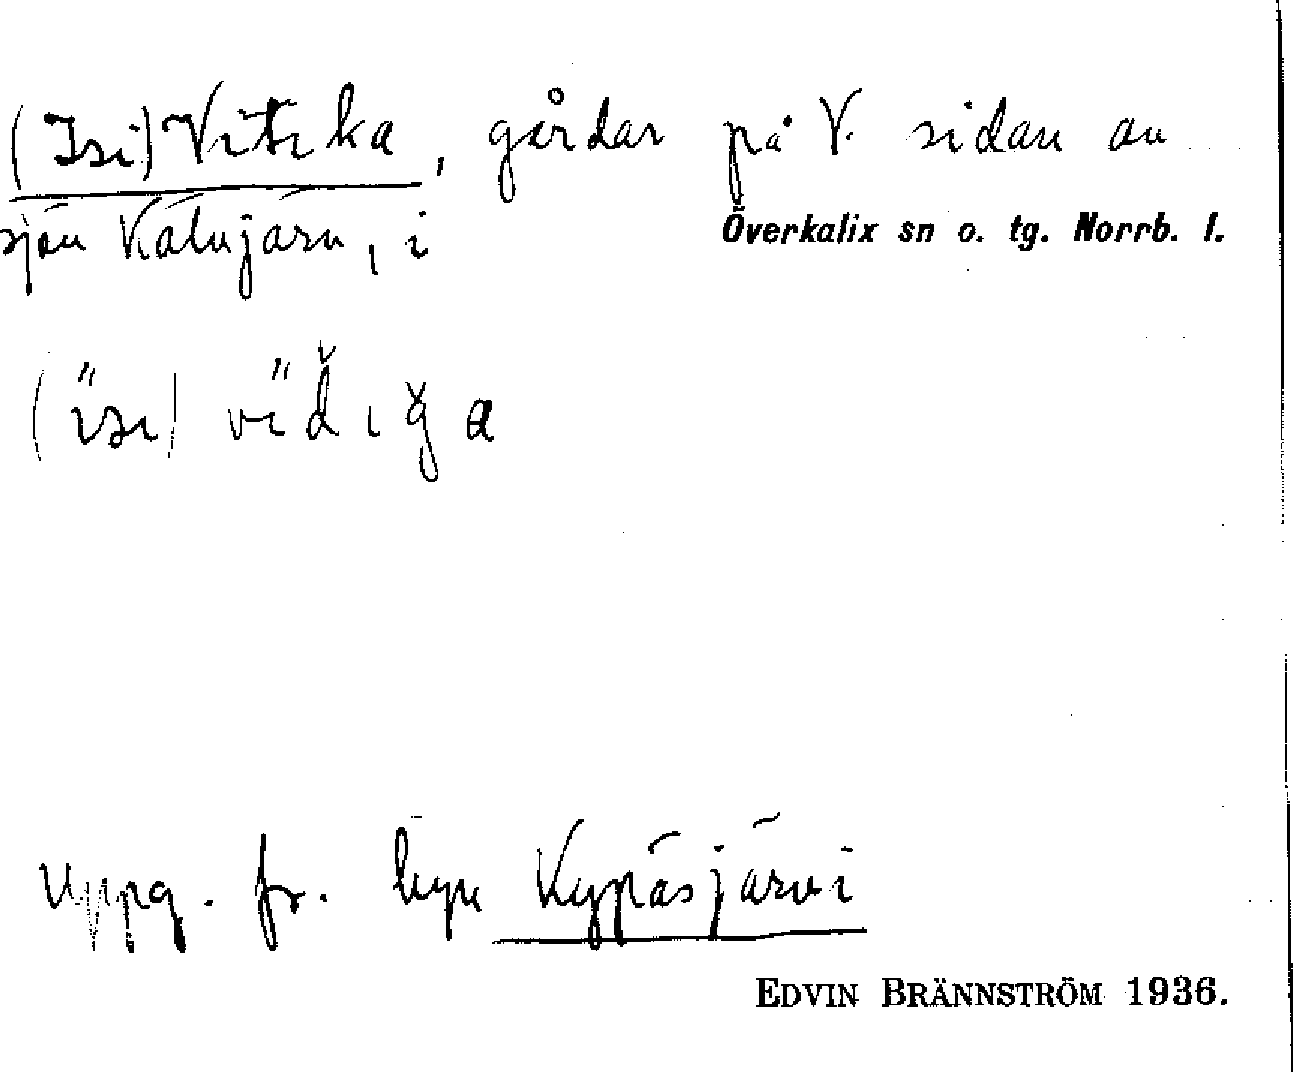 (Isi)Vitika, gårdar på V. sidan av
sjön Kälvjärv, i Överkalix sn o. tg. Norrb. l.
Uppg. fr. byn Kypäsjärvi
EDVIN BRÄNNSTRÖM 1936.